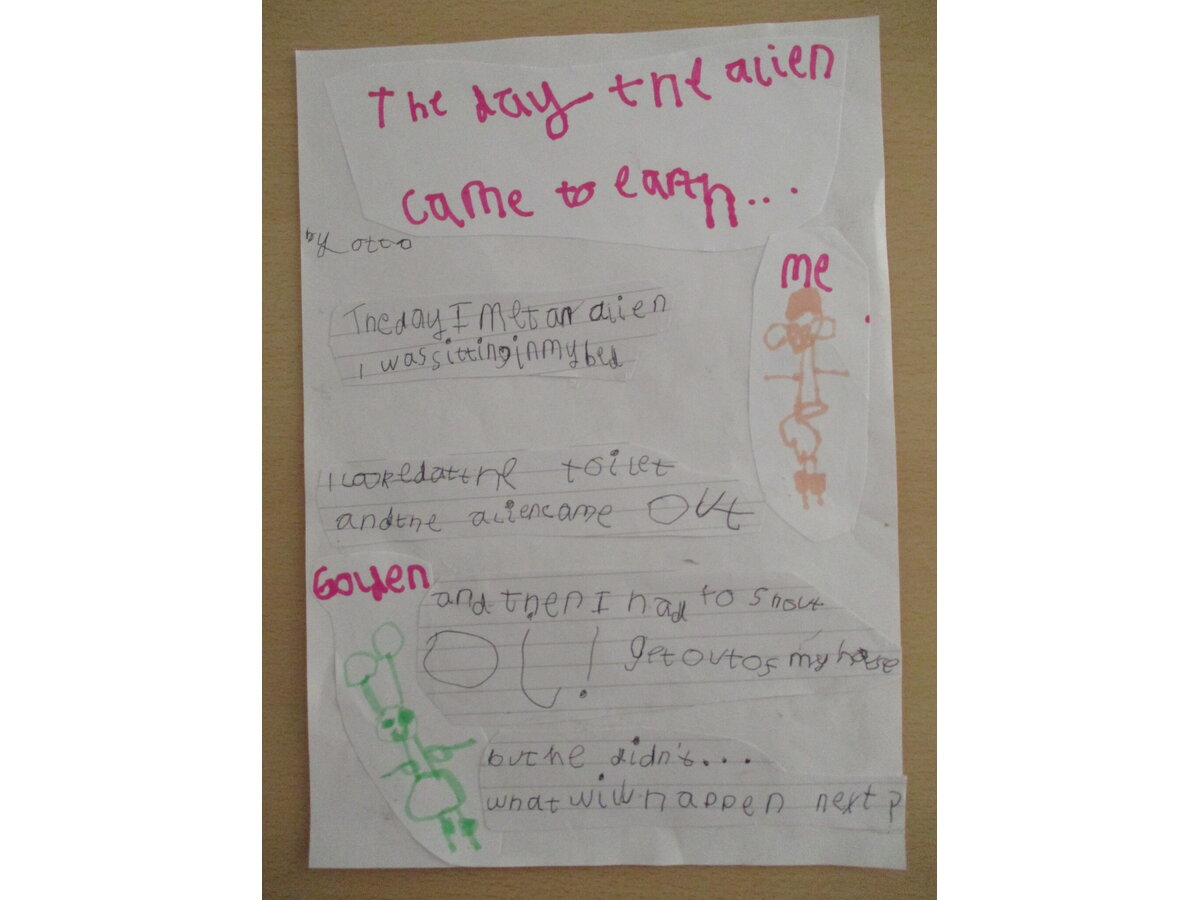 The day the alien
came to earth...
by otto
me
The day I met an alien
I was sitting in my bed
I looked at the toilet
and the alien came OUt
and then I had to shout
OI! get out of my house
but he didn't...
what will happen next?